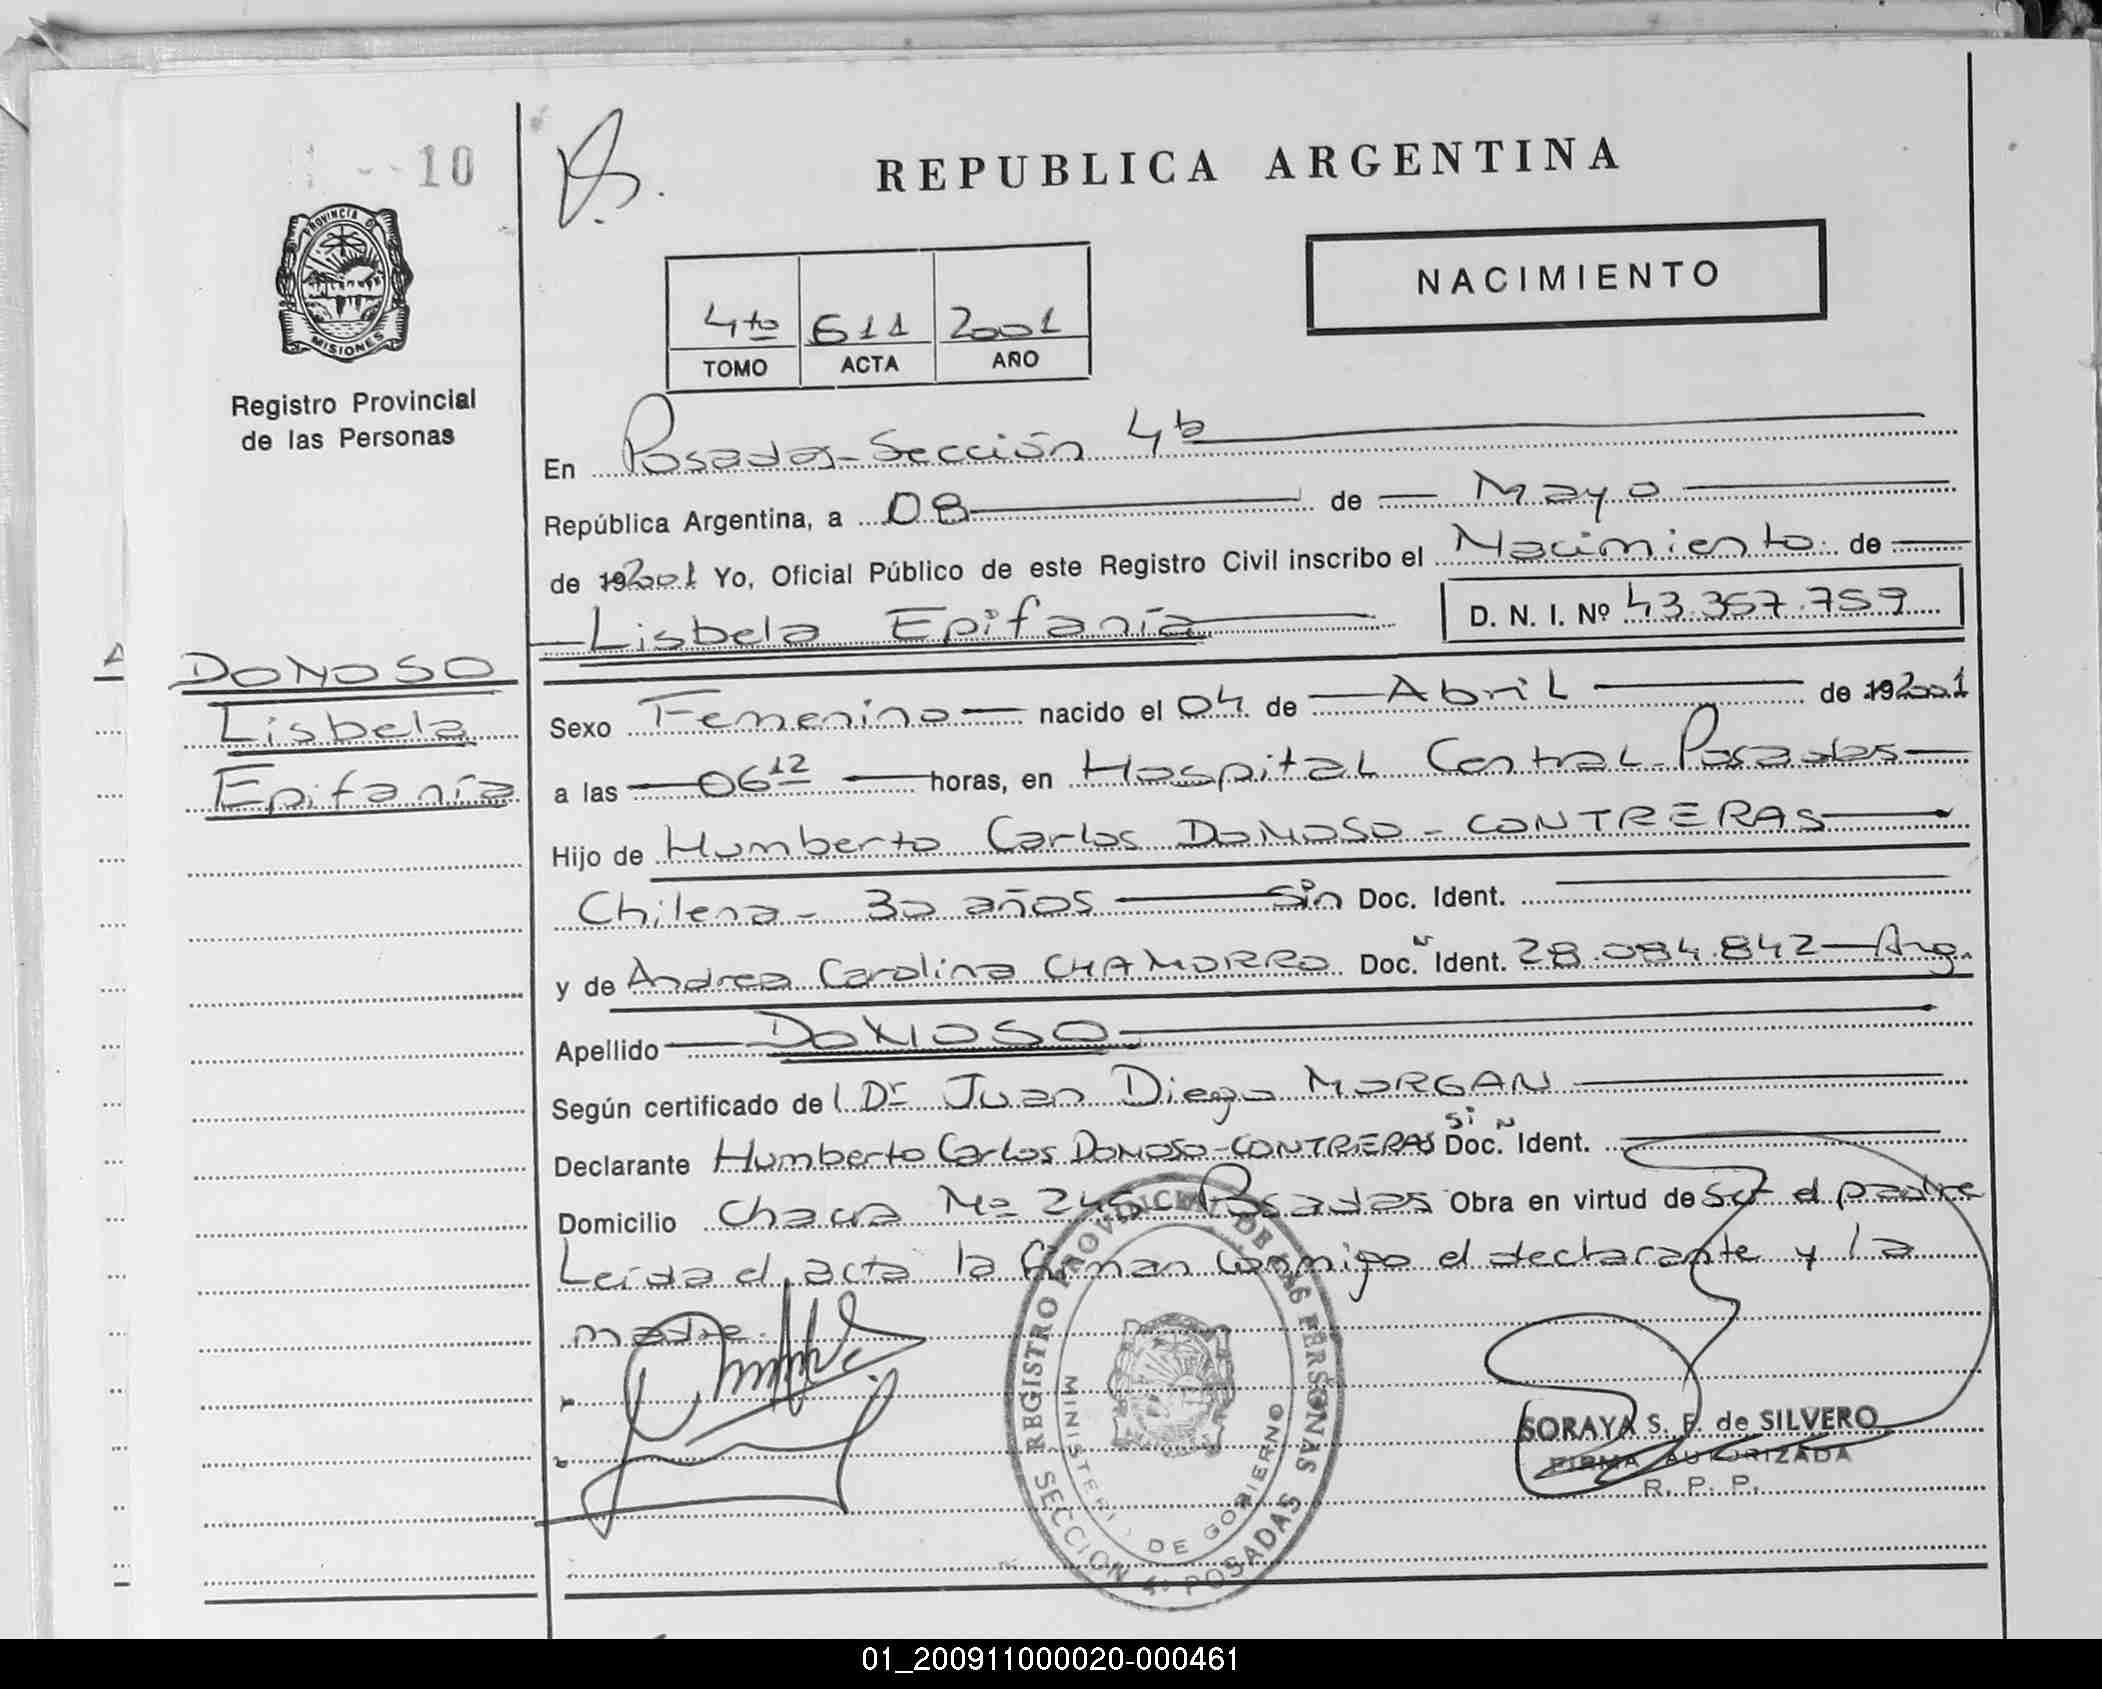 10
REPUBLICA ARGENTINA
PROVINCIA D
MISIONES
NACIMIENTO
4to 611 2001
TOMO ACTA AÑO
Registro Provincial
de las Personas
En Posadas - Sección 4ta
República Argentina, a 08 de Mayo
de 192001 Yo, Oficial Público de este Registro Civil inscribo el Nacimiento de
Lisbela Epifanía D. N. I. Nº 43.357.759
DONOSO
Lisbela
Epifanía
Sexo Femenino nacido el 04 de Abril de 192001
a las 06 12 horas, en Hospital Central - Posadas
Hijo de Humberto Carlos DONOSO - CONTRERAS
Chilena - 30 años sin Doc. Ident.
y de Andrea Carolina CHAMORRO Doc. N Ident. 28.084.842 - Arg.
Apellido DONOSO
Según certificado de l Dr Juan Diego MORGAN
Declarante Humberto Carlos DONOSO - CONTRERAS Si N Doc. Ident.
Domicilio Chacra Nº 246 Posadas Obra en virtud de ser el padre
Leída el acta la firman conmigo el declarante y la
madre.
REGISTRO PROVINCIAL DE LAS PERSONAS
MINISTERIO DE GOBIERNO
SECCION 4ª POSADAS
SORAYA S. F. de SILVERO
FIRMA AUTORIZADA
R. P. P.
01_200911000020-000461